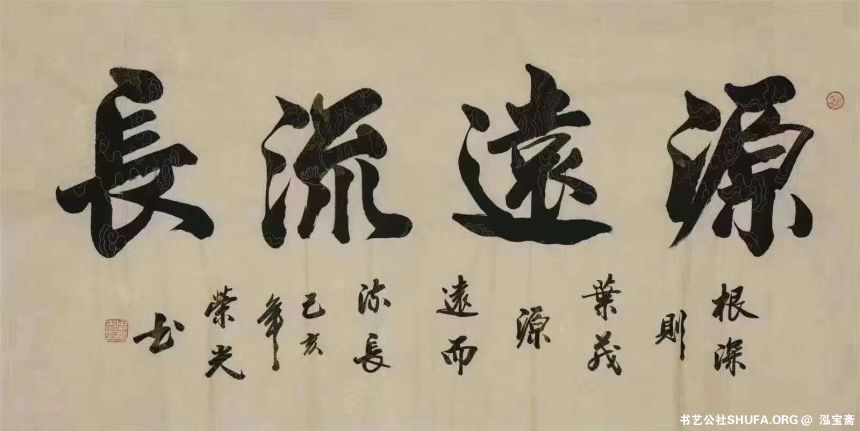 源遠流長
根深
則
葉茂
源
遠而
流長
己亥
年
榮光
书
书艺公社SHUFA.ORG @ 泓宝斋